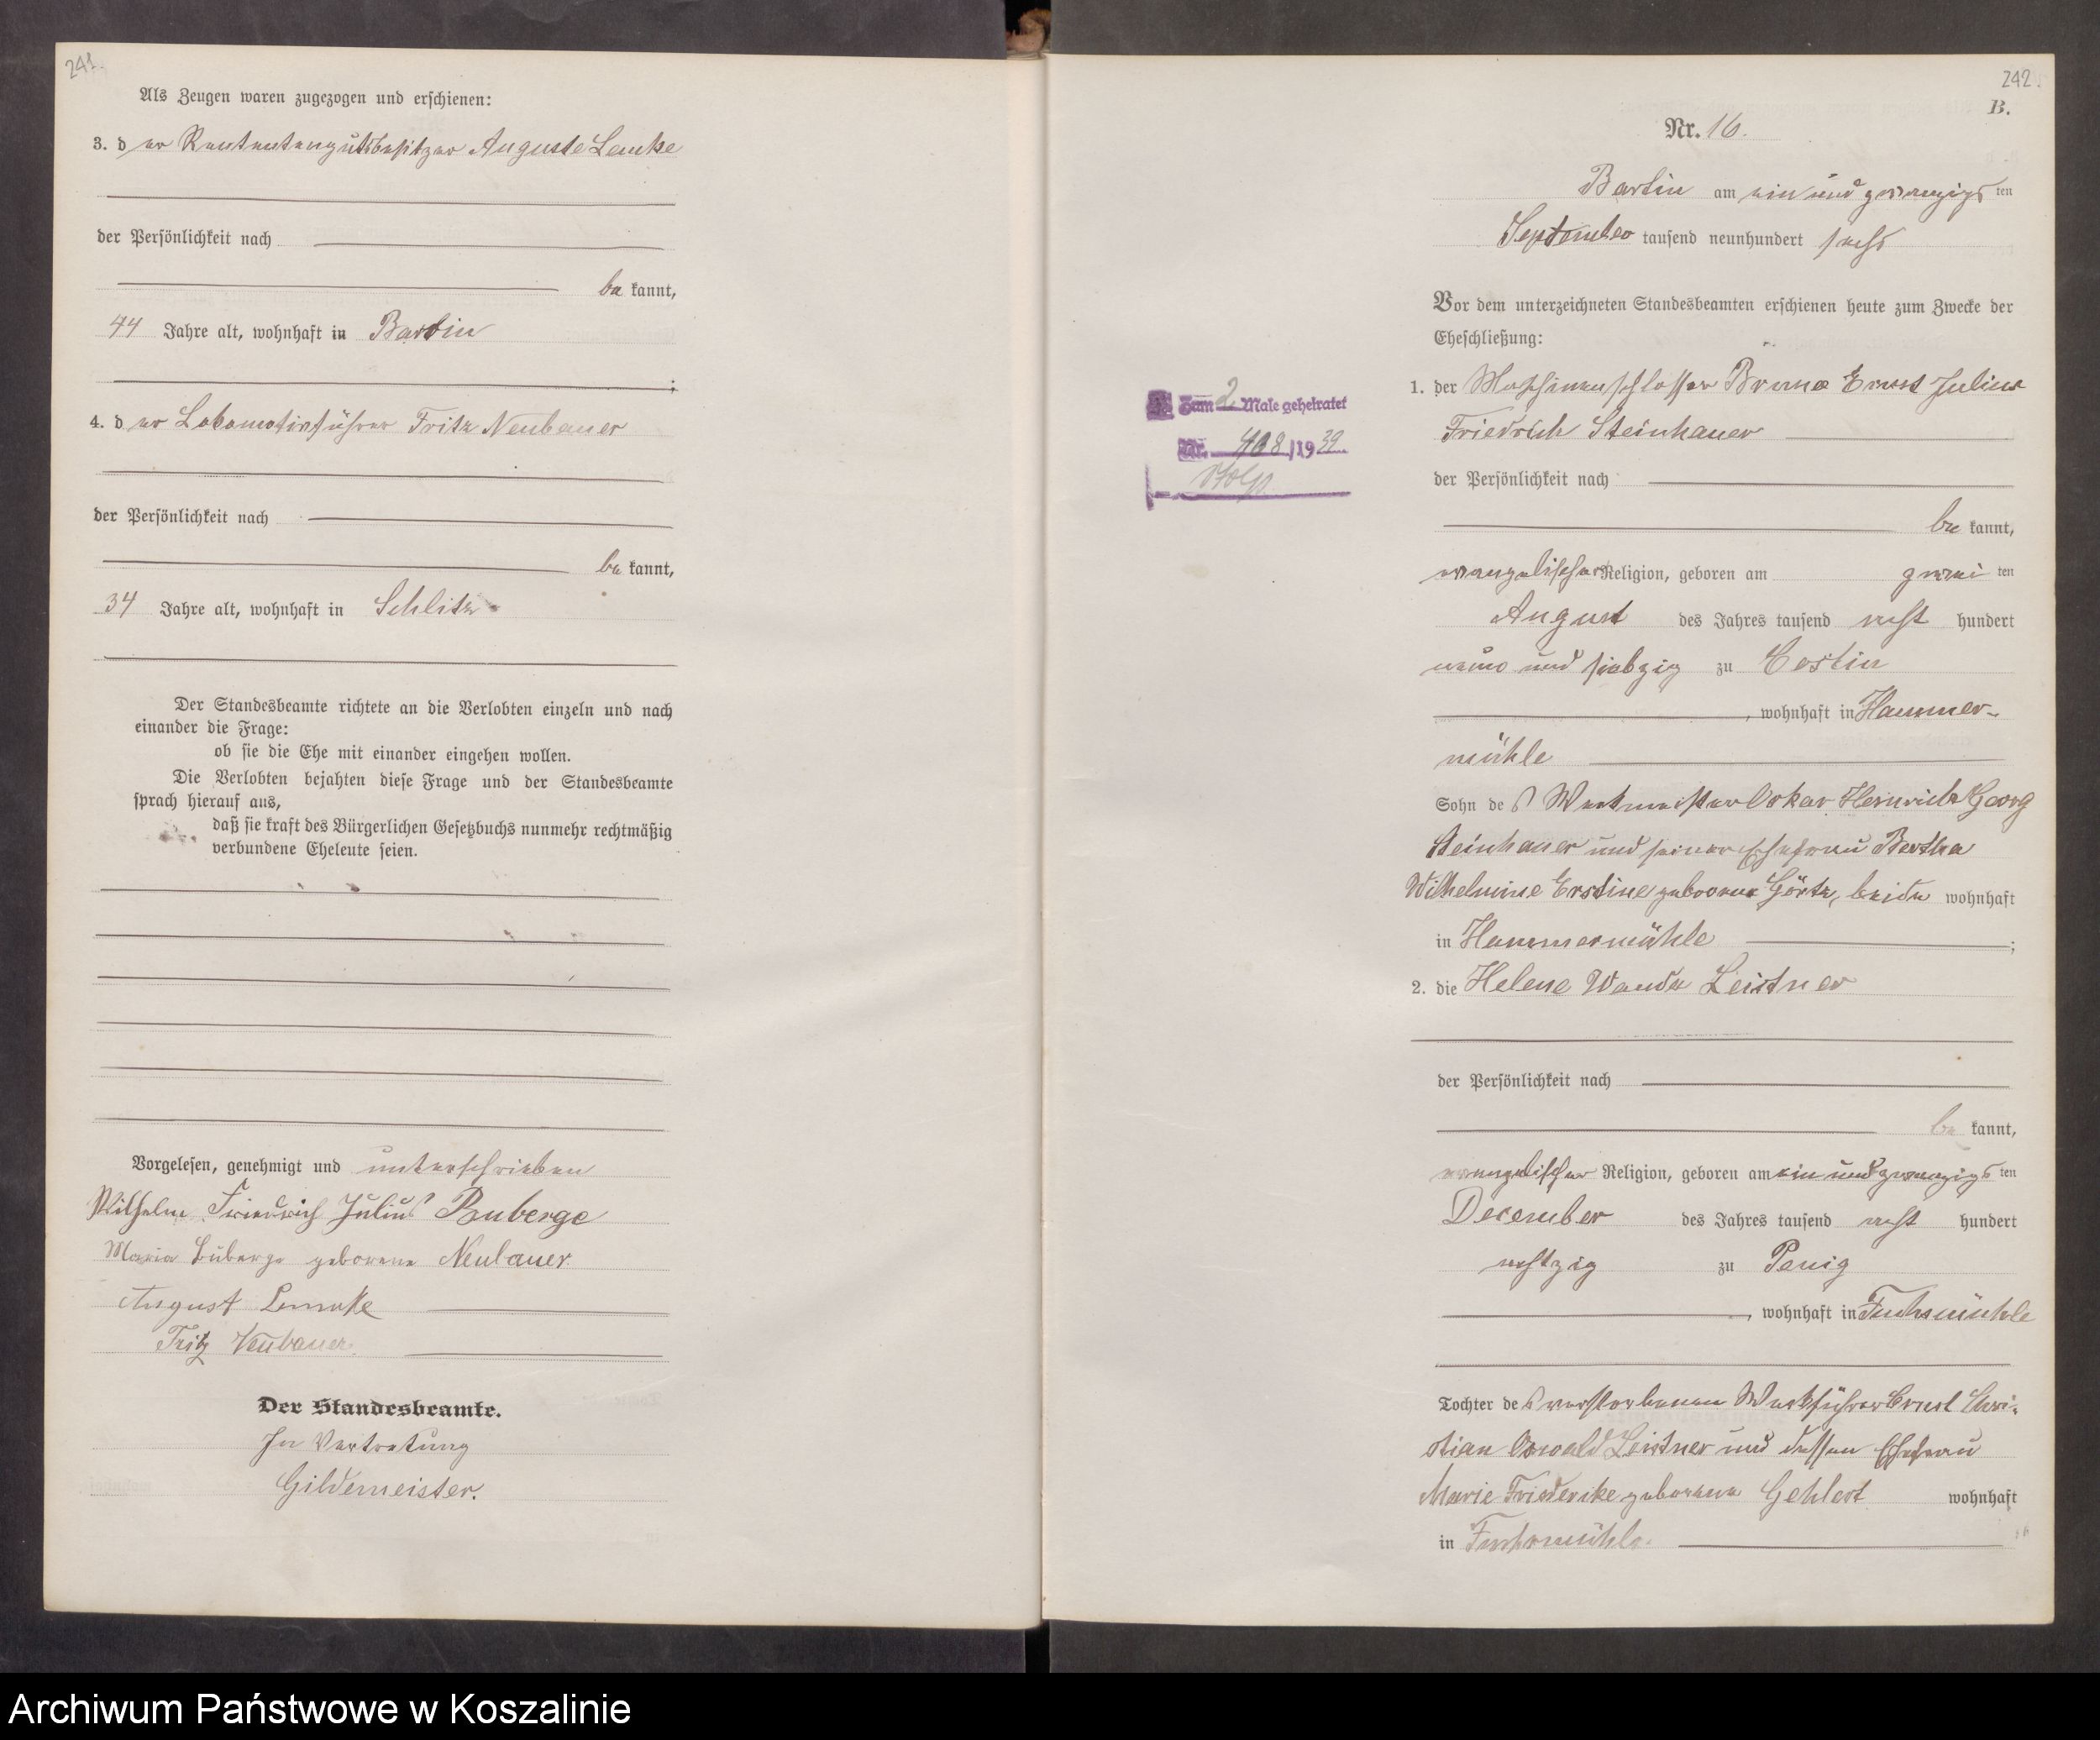 241.
Als Zeugen waren zugezogen und erschienen:
3. der Rentengutsbesitzer Auguste Lemke
der Persönlichkeit nach
be kannt,
44 Jahre alt, wohnhaft in Bartin
;
4. der Lokomotivführer Fritz Neubauer
der Persönlichkeit nach
be kannt,
34 Jahre alt, wohnhaft in Schlitz
Der Standesbeamte richtete an die Verlobten einzeln und nach
einander die Frage:
ob sie die Ehe mit einander eingehen wollen.
Die Verlobten bejahten diese Frage und der Standesbeamte
sprach hierauf aus,
daß sie kraft des Bürgerlichen Gesetzbuchs nunmehr rechtmäßig
verbundene Eheleute seien.
Vorgelesen, genehmigt und unterschrieben
Wilhelm Friedrich Julius Buberge
Maria Buberge geborene Neubauer
August Lemke
Fritz Neubauer.
Der Standesbeamte.
In Vertretung
Gildemeister.
242.
B.
Nr. 16.
Bartin am ein und zwanzigs ten
September tausend neunhundert sechs
Vor dem unterzeichneten Standesbeamten erschienen heute zum Zwecke der
Eheschließung:
1. der Maschinenschlosser Bruno Ernst Julius
Friedrich Steinhauer
der Persönlichkeit nach
be kannt,
evangelischer Religion, geboren am zwei ten
August des Jahres tausend acht hundert
neun und siebzig zu Cöslin
, wohnhaft in Hammer-
mühle
Sohn des Werkmeister Oskar Heinrich Georg
Steinhauer und seiner Ehefrau Bertha
Wilhelmine Erstine geborene Görtz, beide wohnhaft
in Hammermühle ;
2. die Helene Wanda Leistner
der Persönlichkeit nach
be kannt,
evangelischer Religion, geboren am ein und zwanzigs ten
December des Jahres tausend acht hundert
achtzig zu Penig
, wohnhaft in Fuchsmühle
Tochter des verstorbenen Werkführer Ernst Chri-
stian Oswald Leistner und dessen Ehefrau
Marie Friederike geborene Gehlert wohnhaft
in Fuchsmühle.
Zum 2 Male geheiratet
Nr. 408/1939
Stolp
Archiwum Państwowe w Koszalinie